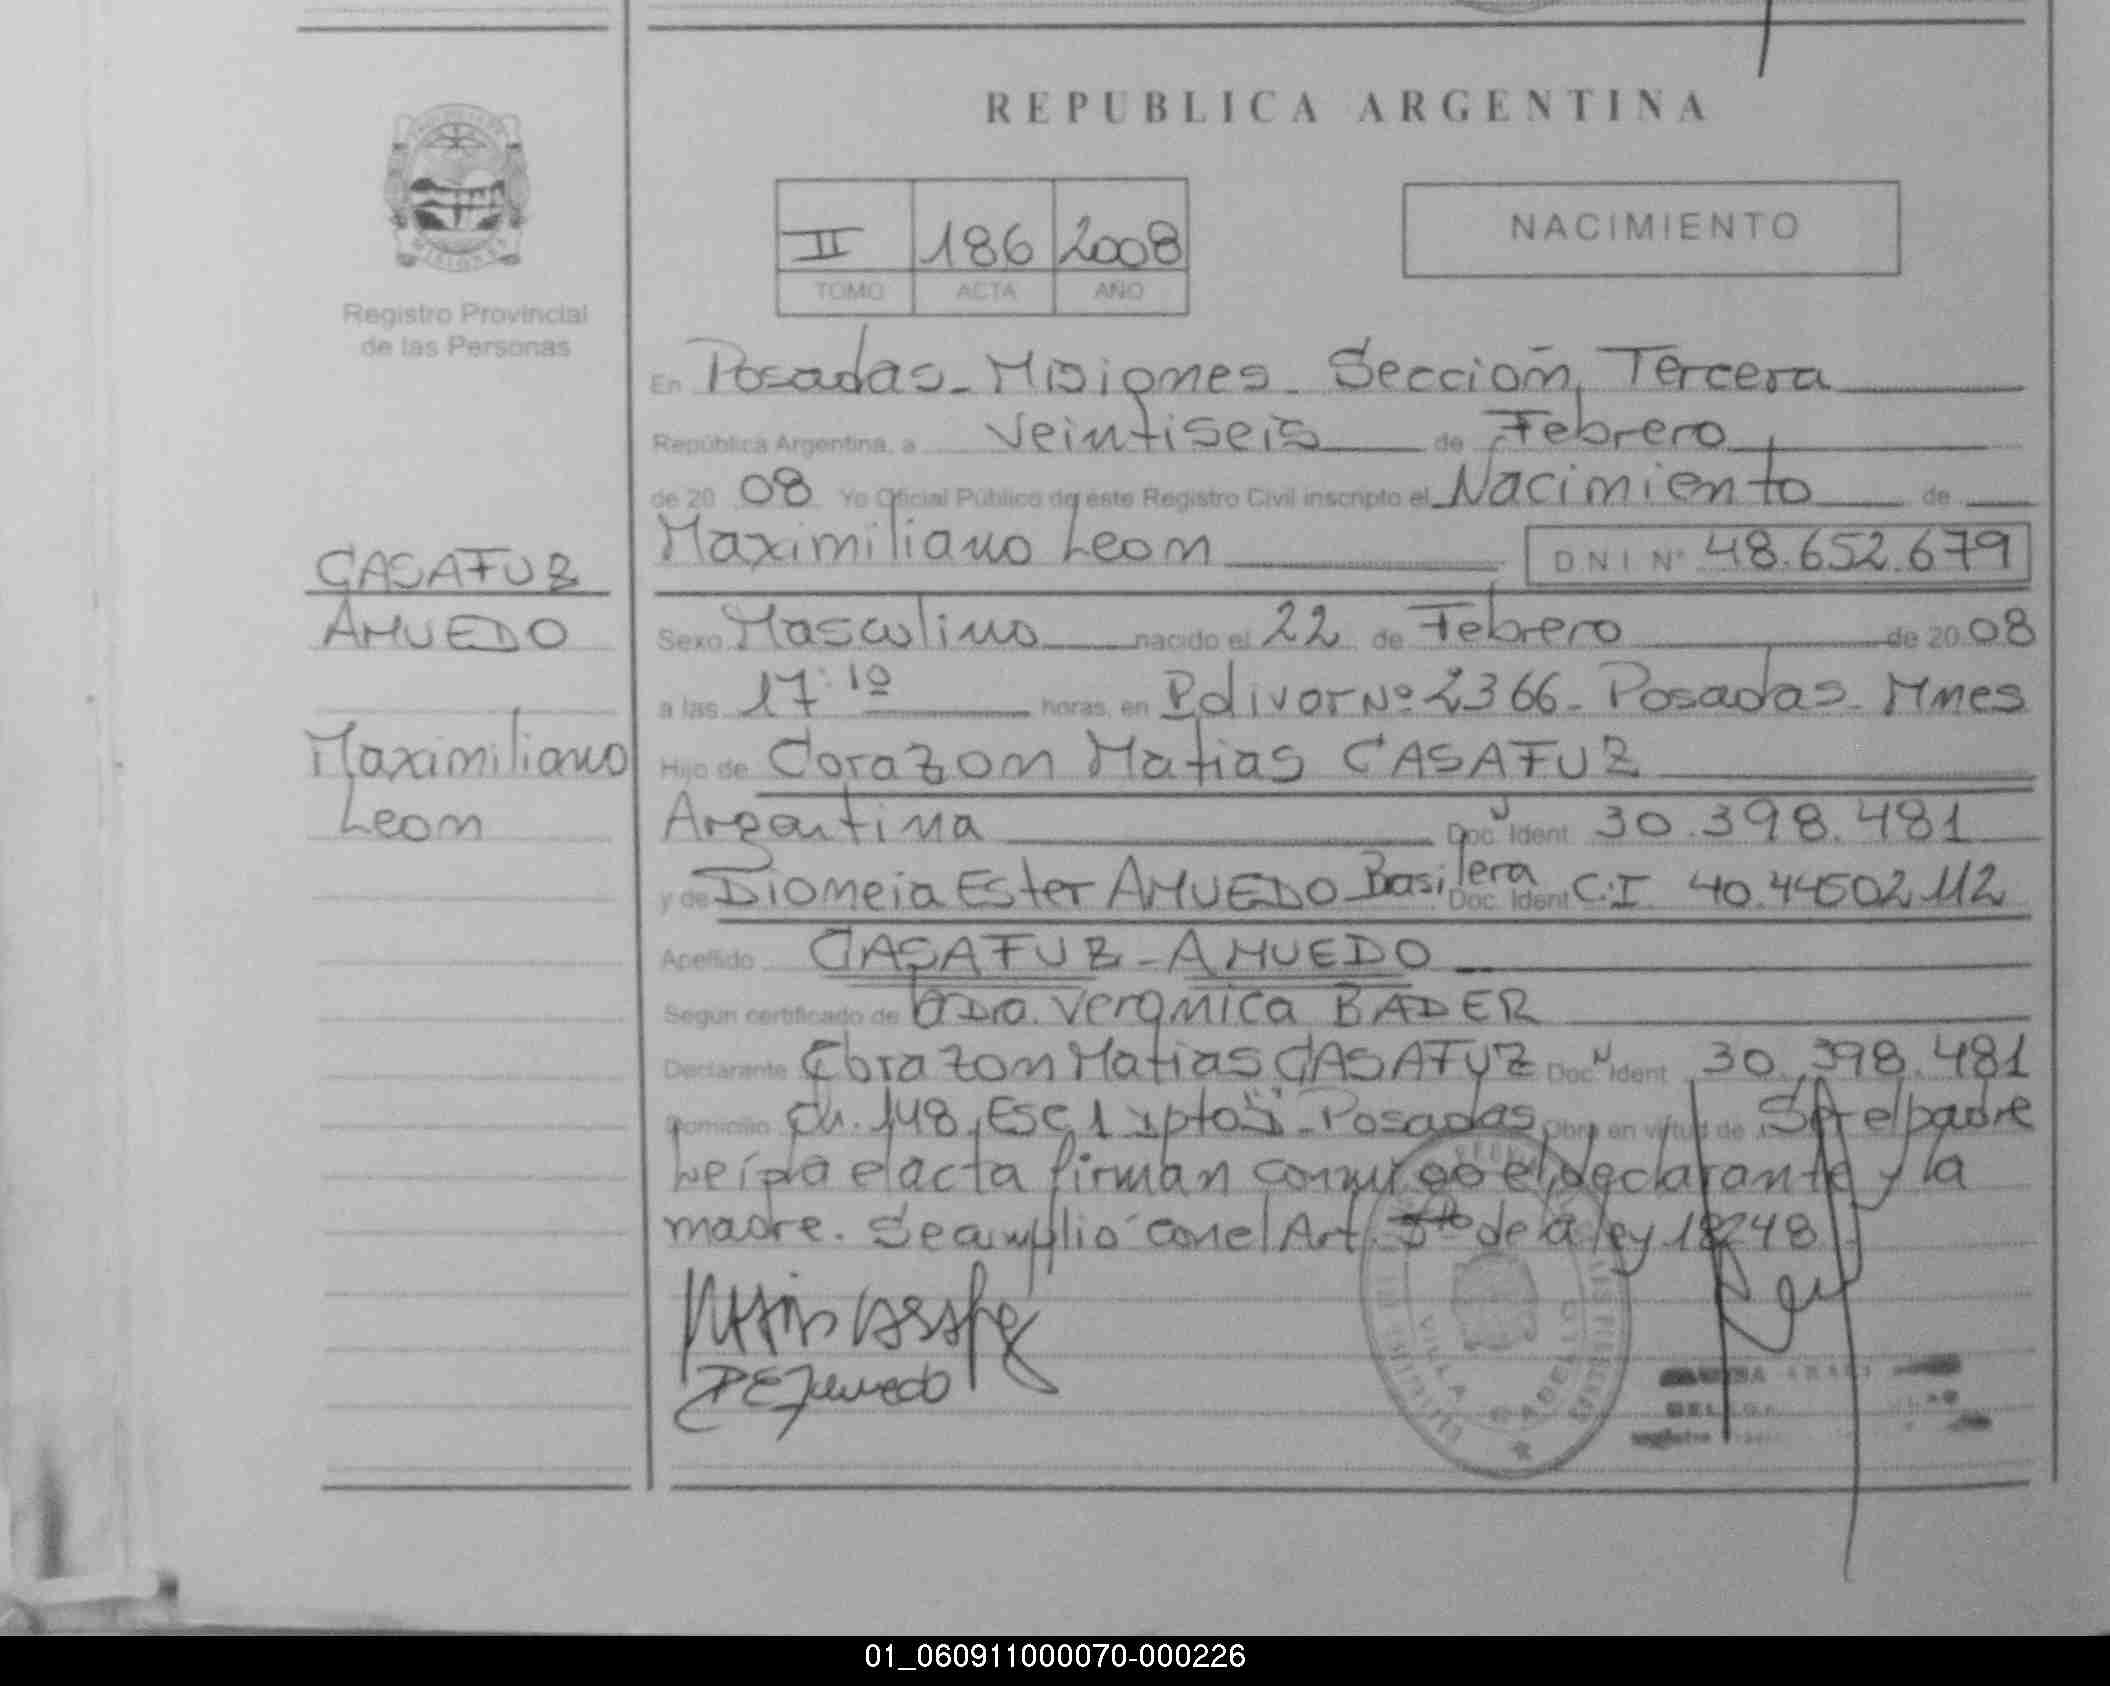 REPUBLICA ARGENTINA
II 186 2008
TOMO ACTA AÑO
NACIMIENTO
Registro Provincial
de las Personas
En Posadas - Misiones - Sección Tercera
República Argentina, a Veintiseis de Febrero
de 20 08 Yo Oficial Público de este Registro Civil inscripto el Nacimiento de
Maximiliano Leon D N I Nº 48.652.679
CASAFUZ
AMUEDO
Maximiliano
Leon
Sexo Masculino nacido el 22 de Febrero de 20 08
a las 17:10 horas, en Bolivar Nº 2366 - Posadas - Mnes
Hijo de Corazon Matias CASAFUZ
Argentina Doc. Ident. 30.398.481
y de Diomeia Ester AMUEDO Basilera Doc. Ident. C.I. 40.44502112
Apellido CASAFUZ - AMUEDO
Según certificado de Dra. Veronica BADER
Declarante Corazon Matias CASAFUZ Doc. Ident. 30.398.481
Domicilio Ch. 148, Esc 1 Dpto 5 - Posadas, Obra en virtud de Ser el padre
Leída el acta firman conmigo el declarante y la
madre. Se cumplio con el Art. 5to de la ley 18248
VILLA CABELLO
01_060911000070-000226